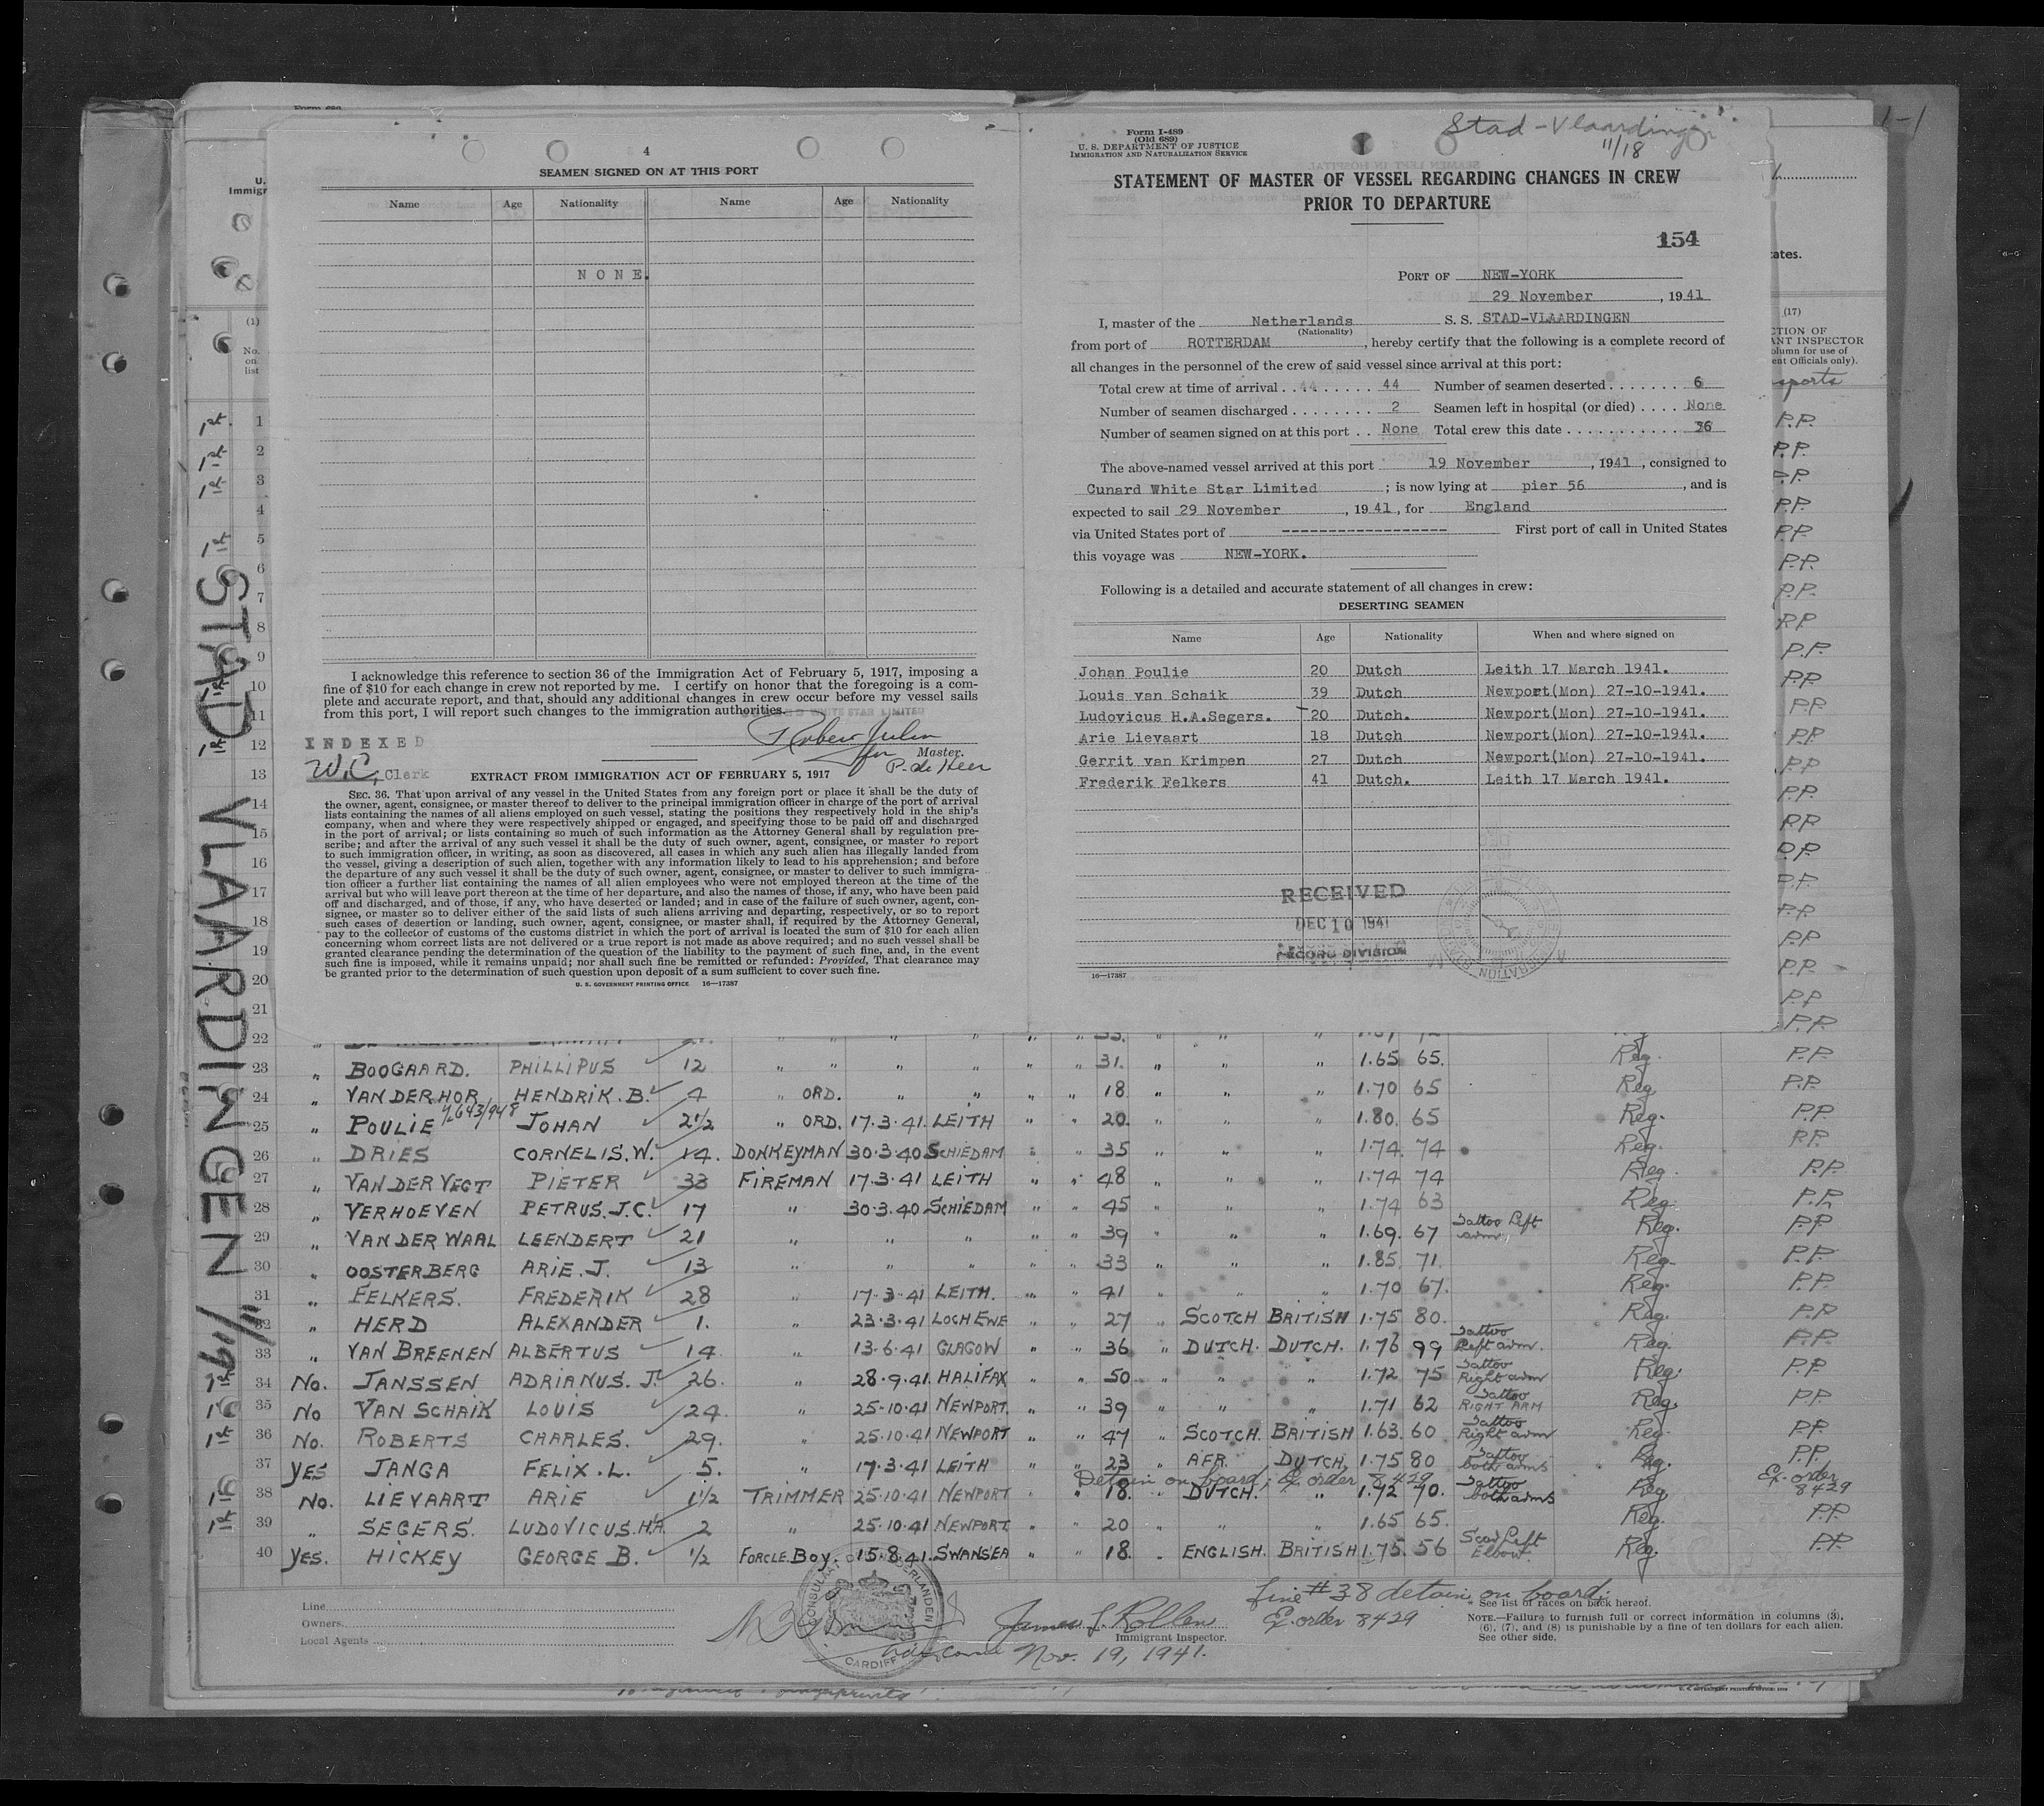 4
SEAMEN SIGNED ON AT THIS PORT
Name Age Nationality Name Age Nationality
NONE.
I acknowledge this reference to section 36 of the Immigration Act of February 5, 1917, imposing a
fine of $10 for each change in crew not reported by me. I certify on honor that the foregoing is a com-
plete and accurate report, and that, should any additional changes in crew occur before my vessel sails
from this port, I will report such changes to the immigration authorities.
WHITE STAR LIMITED
for Master.
P. de Heer
INDEXED
W.C, Clerk
EXTRACT FROM IMMIGRATION ACT OF FEBRUARY 5, 1917
SEC. 36. That upon arrival of any vessel in the United States from any foreign port or place it shall be the duty of
the owner, agent, consignee, or master thereof to deliver to the principal immigration officer in charge of the port of arrival
lists containing the names of all aliens employed on such vessel, stating the positions they respectively hold in the ship's
company, when and where they were respectively shipped or engaged, and specifying those to be paid off and discharged
in the port of arrival; or lists containing so much of such information as the Attorney General shall by regulation pre-
scribe; and after the arrival of any such vessel it shall be the duty of such owner, agent, consignee, or master to report
to such immigration officer, in writing, as soon as discovered, all cases in which any such alien has illegally landed from
the vessel, giving a description of such alien, together with any information likely to lead to his apprehension; and before
the departure of any such vessel it shall be the duty of such owner, agent, consignee, or master to deliver to such immigra-
tion officer a further list containing the names of all alien employees who were not employed thereon at the time of the
arrival but who will leave port thereon at the time of her departure, and also the names of those, if any, who have been paid
off and discharged, and of those, if any, who have deserted or landed; and in case of the failure of such owner, agent, con-
signee, or master so to deliver either of the said lists of such aliens arriving and departing, respectively, or so to report
such cases of desertion or landing, such owner, agent, consignee, or master shall, if required by the Attorney General,
pay to the collector of customs of the customs district in which the port of arrival is located the sum of $10 for each alien
concerning whom correct lists are not delivered or a true report is not made as above required; and no such vessel shall be
granted clearance pending the determination of the question of the liability to the payment of such fine, and, in the event
such fine is imposed, while it remains unpaid; nor shall such fine be remitted or refunded: Provided, That clearance may
be granted prior to the determination of such question upon deposit of a sum sufficient to cover such fine.
U. S. GOVERNMENT PRINTING OFFICE 16—17387
Form I-489
(Old 689)
U. S. DEPARTMENT OF JUSTICE
IMMIGRATION AND NATURALIZATION SERVICE
Stad-Vlaardingen
11/18
STATEMENT OF MASTER OF VESSEL REGARDING CHANGES IN CREW
PRIOR TO DEPARTURE
154
PORT OF NEW-YORK
29 November, 1941
I, master of the Netherlands S. S. STAD-VLAARDINGEN
(Nationality)
from port of ROTTERDAM, hereby certify that the following is a complete record of
all changes in the personnel of the crew of said vessel since arrival at this port:
Total crew at time of arrival . . 44 . . . . . . 44 Number of seamen deserted . . . . . . . 6
Number of seamen discharged . . . . . . . . 2 Seamen left in hospital (or died) . . . . None
Number of seamen signed on at this port . . None Total crew this date . . . . . . . . . . . . 36
The above-named vessel arrived at this port 19 November, 1941, consigned to
Cunard White Star Limited; is now lying at pier 56, and is
expected to sail 29 November, 1941, for England
via United States port of ------------------- First port of call in United States
this voyage was NEW-YORK.
Following is a detailed and accurate statement of all changes in crew:
DESERTING SEAMEN
Name Age Nationality When and where signed on
Johan Poulie 20 Dutch Leith 17 March 1941.
Louis van Schaik 39 Dutch Newport(Mon) 27-10-1941.
Ludovicus H.A.Segers. 20 Dutch. Newport(Mon) 27-10-1941.
Arie Lievaart 18 Dutch Newport(Mon) 27-10-1941.
Gerrit van Krimpen 27 Dutch Newport(Mon) 27-10-1941.
Frederik Felkers 41 Dutch. Leith 17 March 1941.
RECEIVED
DEC 10 1941
RECORD DIVISION
16—17387
STAD VLAARDINGEN 11/19
U.
Immigr
(1)
No.
on
list
ates.
(17)
CTION OF
ANT INSPECTOR
olumn for use of
ent Officials only).
sports
1st 1 P.P.
1st 2 P.P.
1st 3 P.P.
4 P.P.
1st 5 P.P.
6 P.P.
7 P.P.
8 P.P.
9 P.P.
1st 10 P.P.
11 P.P.
1st 12 P.P.
13 P.P.
14 P.P.
15 P.P.
16 P.P.
17 P.P.
18 P.P.
19 P.P.
20 P.P.
21 P.P.
22 " " " " " " 33. " " " P.P.
23 " BOOGAARD. PHILLIPUS 12 " " " " " " 31. " " " 1.65 65. Reg. P.P.
24 " VAN DER HOR HENDRIK.B. 4 " ORD. " " " " 18 " " " 1.70 65 Reg P.P.
25 " POULIE JOHAN 2½ " ORD. 17.3.41. LEITH " " 20. " " " 1.80. 65 Reg. P.P.
26 " DRIES CORNELIS.W. 14. DONKEYMAN 30.3.40 SCHIEDAM " " 35 " " " 1.74. 74 Reg. P.P.
27 " VAN DER VEGT PIETER 33 FIREMAN 17.3.41 LEITH " " 48 " " " 1.74 74 Reg. P.P.
28 " VERHOEVEN PETRUS.J.C. 17 " 30.3.40 SCHIEDAM " " 45 " " " 1.74 63 Reg. P.P.
29 " VAN DER WAAL LEENDERT 21 " " " " " 39 " " " 1.69. 67 Tattoo Left arm. Reg. P.P.
30 " OOSTERBERG ARIE.J. 13 " " " " " 33 " " " 1.85. 71. Reg. P.P.
31 " FELKERS. FREDERIK 28 " 17.3.41 LEITH. " " 41 " " " 1.70 67. Reg. P.P.
32 " HERD ALEXANDER 1. " 23.3.41 LOCH EWE " " 27 " SCOTCH BRITISH 1.75 80. Reg. P.P.
33 " VAN BREENEN ALBERTUS 14 " 13.6.41 GLASGOW " " 36 " DUTCH. DUTCH. 1.76 99 Tattoo Left arm. Reg. P.P.
1st 34 No. JANSSEN ADRIANUS. J. 26. " 28.9.41. HALIFAX " " 50 " " " 1.72 75 Tattoo Right arm Reg. P.P.
35 No VAN SCHAIK LOUIS 24. " 25.10.41 NEWPORT. " " 39 " " " 1.71 62 Tattoo RIGHT ARM Reg. P.P.
1st 36 No. ROBERTS CHARLES. 29. " 25.10.41 NEWPORT " " 47 " SCOTCH. BRITISH 1.63. 60 Tattoo Right arm Reg. P.P.
37 YES JANGA FELIX.L. 5. " 17.3.41 LEITH " " 23 " AFR. DUTCH 1.75 80 Tattoo both arms Reg. P.P.
Detain on board; Ex order 8429
1st 38 No. LIEVAART ARIE 1½ TRIMMER 25.10.41 NEWPORT " " 18. " DUTCH. " 1.72 70. Tattoo both arms Reg Ex. order 8429
1st 39 " SEGERS. LUDOVICUS.H.A. 2 " 25.10.41 NEWPORT. " " 20 " " " 1.65 65. Reg. P.P.
40 YES. HICKEY GEORGE B. ½ FORCLE.BOY. 15.8.41. SWANSEA " " 18. " ENGLISH. BRITISH 1.75. 56 Scar Left Elbow. Reg. P.P.
Line
Owners
Local Agents
CARDIFF
James L. Rollen
Immigrant Inspector.
Nov. 19, 1941.
Line #38 detain on board.
Ex. order 8429
* See list of races on back hereof.
NOTE.—Failure to furnish full or correct information in columns (3),
(6), (7), and (8) is punishable by a fine of ten dollars for each alien.
See other side.